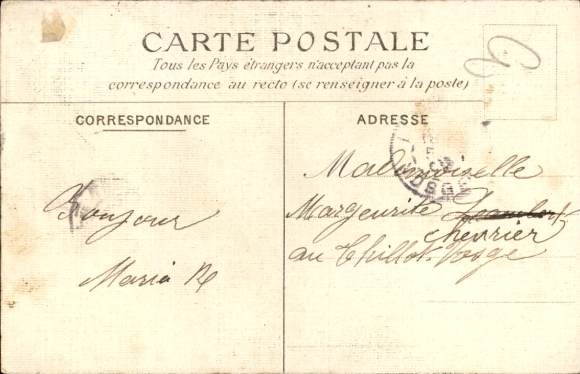 CARTE POSTALE
Tous les Pays étrangers n'acceptant pas la
correspondance au recto (se renseigner à la poste)
CORRESPONDANCE
ADRESSE
Bonjour
Maria R
Mademoiselle
Margeurite
chevrier
au Thillot Vosge
VOSGES